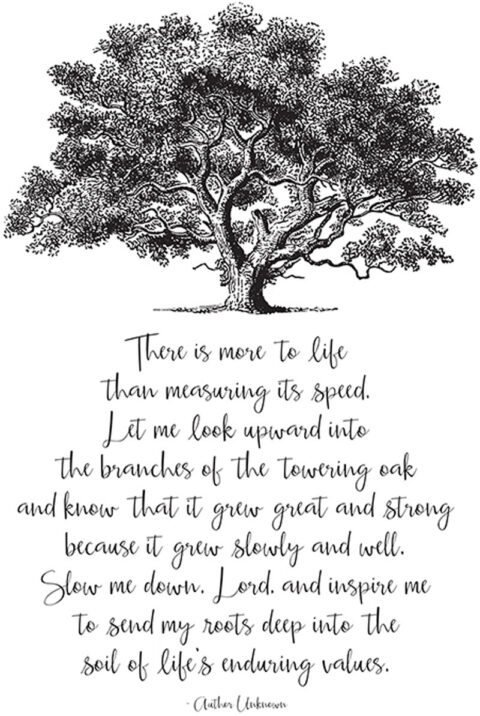 There is more to life
than measuring its speed.
Let me look upward into
the branches of the towering oak
and know that it grew great and strong
because it grew slowly and well.
Slow me down. Lord. and inspire me
to send my roots deep into the
soil of life's enduring values.
- Auther Unknown